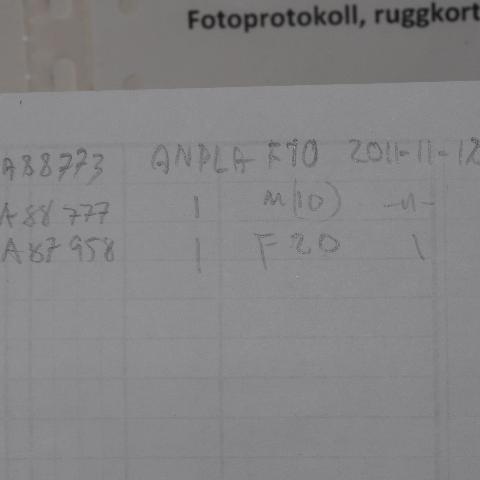 Fotoprotokoll, ruggkort
A88773 ANPLA F10 2011-11-12
A88777 | M(10) -"-
A87958 | F20 |